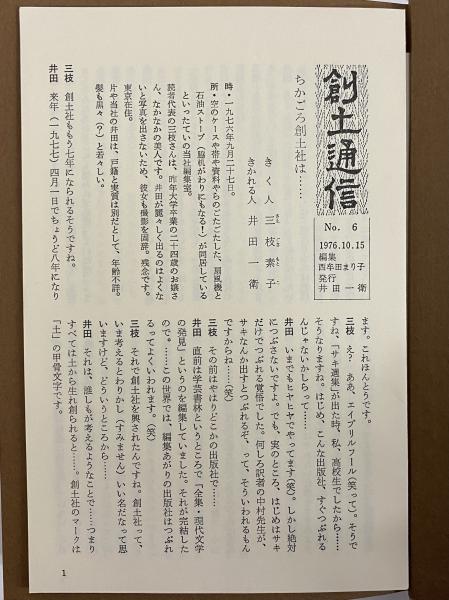 創土通信
No. 6
1976.10.15
編集
西牟田まり子
発行
井田一衛
ちかごろ創土社は……
きく人 三枝素子
きかれる人 井田一衛
時・一九七六年九月二十七日。
所・空のケースや帯や資料やらのごたごたした、扇風機と
石油ストーブ(脇机がわりにもなる!)が同居している
といったていの当社編集室。
読者代表の三枝さんは、昨年大学卒業の二十四歳のお嬢さ
ん、なかなかの美人です。井田が麗々しく出るのはよくな
いと写真を出さないため、彼女も撮影を固辞。残念です。
東京在住。
片や当社の井田は、戸籍と実質は別だとして、年齢不詳。
髪も黒々(?)と若々しい。
三枝 創土社ももう七年になられるそうですね。
井田 来年(一九七七)四月一日でちょうど八年になり
ます。これほんとうです。
三枝 え? ああ、エイプリルフール(笑って)。そうで
すね、「サキ選集」が出た時、私、高校生でしたから……
そうなりますね。はじめ、こんな出版社、すぐつぶれる
んじゃないかしらって……
井田 いまでもヒヤヒヤでやってます(笑)。しかし絶対
につぶさないですよ。でも、実のところ、はじめはサキ
だけでつぶれる覚悟でした。何しろ訳者の中村先生が、
サキなんか出すとつぶれるぞ、って、そういわれるもん
ですからね……(笑)
三枝 その前はやはりどこかの出版社で……
井田 直前は学芸書林というところで「全集・現代文学
の発見」というのを編集していました。それが完結した
ので。……この世界では、編集あがりの出版社はつぶれ
るってよくいわれます。(笑)
三枝 それで創土社を興されたんですね。創土社って、
いま考えるとわりかし(すみません)いい名だなって思
いますけど、どういうところから……
井田 それは、誰しもが考えるようなことで……つまり
すべては土から生れ創られると……。創土社のマークは
「土」の甲骨文字です。
1